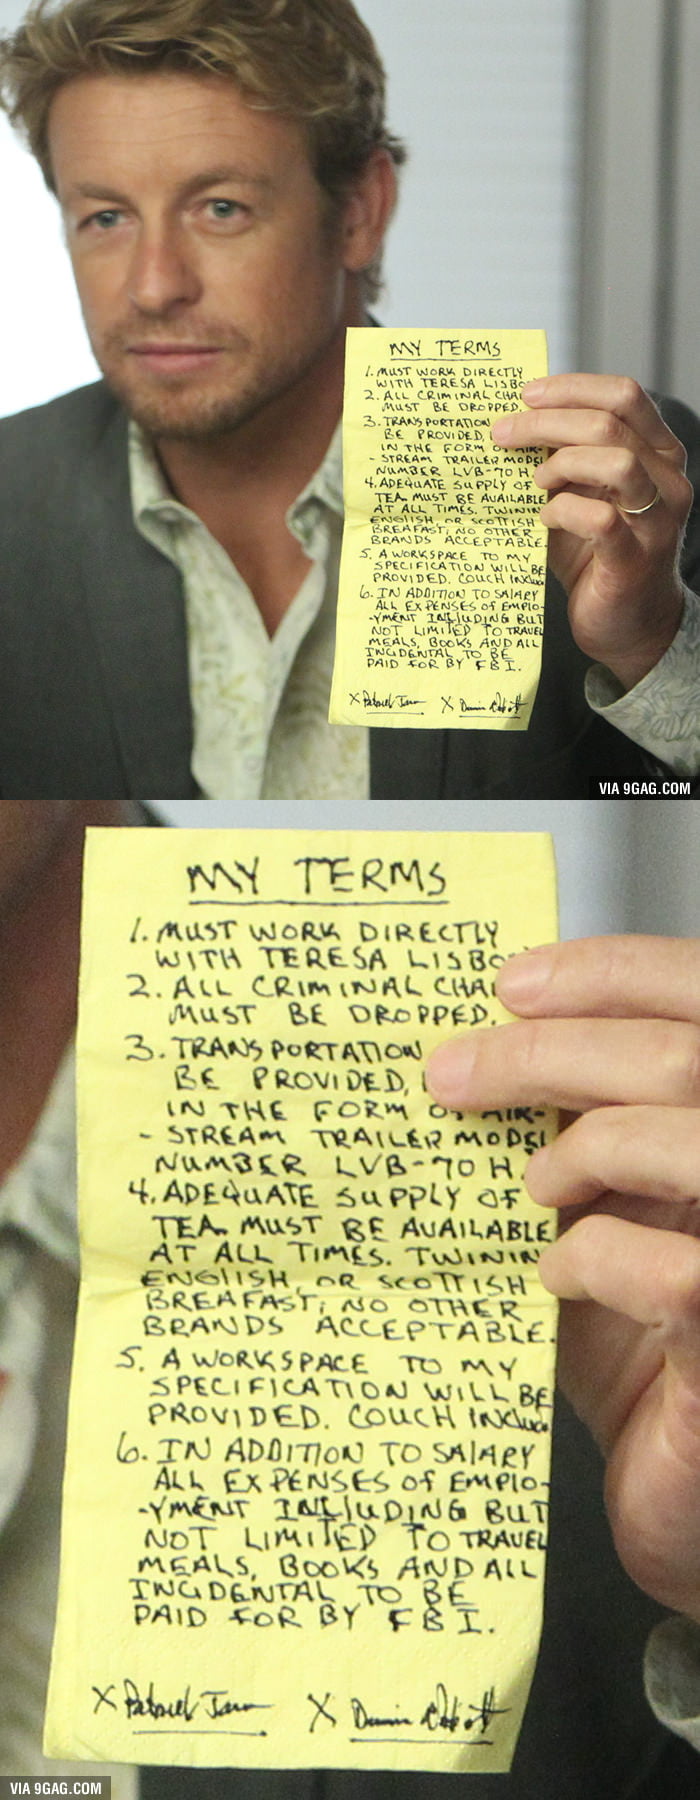 MY TERMS
1. MUST WORK DIRECTLY
WITH TERESA LISBO
2. ALL CRIMINAL CHA
MUST BE DROPPED.
3. TRANSPORTATION
BE PROVIDED,
IN THE FORM OF AIR-
- STREAM TRAILER MODEL
NUMBER LVB-70 H.
4. ADEQUATE SUPPLY OF
TEA MUST BE AVAILABLE
AT ALL TIMES. TWININ
ENGLISH, OR SCOTTISH
BREAFAST; NO OTHER
BRANDS ACCEPTABLE.
5. A WORKSPACE TO MY
SPECIFICATION WILL BE
PROVIDED. COUCH INCLUD
6. IN ADDITION TO SALARY
ALL EXPENSES OF EMPLO-
-YMENT INCLUDING BUT
NOT LIMITED TO TRAVEL
MEALS, BOOKS AND ALL
INCIDENTAL TO BE
PAID FOR BY FBI.
X Patrick Jane X Dennis Abbott
VIA 9GAG.COM
MY TERMS
1. MUST WORK DIRECTLY
WITH TERESA LISBO
2. ALL CRIMINAL CHA
MUST BE DROPPED.
3. TRANSPORTATION
BE PROVIDED,
IN THE FORM OF AIR-
- STREAM TRAILER MODEL
NUMBER LVB-70 H.
4. ADEQUATE SUPPLY OF
TEA MUST BE AVAILABLE
AT ALL TIMES. TWININ
ENGLISH, OR SCOTTISH
BREAFAST; NO OTHER
BRANDS ACCEPTABLE.
5. A WORKSPACE TO MY
SPECIFICATION WILL BE
PROVIDED. COUCH INCLUD
6. IN ADDITION TO SALARY
ALL EXPENSES OF EMPLO-
-YMENT INCLUDING BUT
NOT LIMITED TO TRAVEL
MEALS, BOOKS AND ALL
INCIDENTAL TO BE
PAID FOR BY FBI.
X Patrick Jane X Dennis Abbott
VIA 9GAG.COM